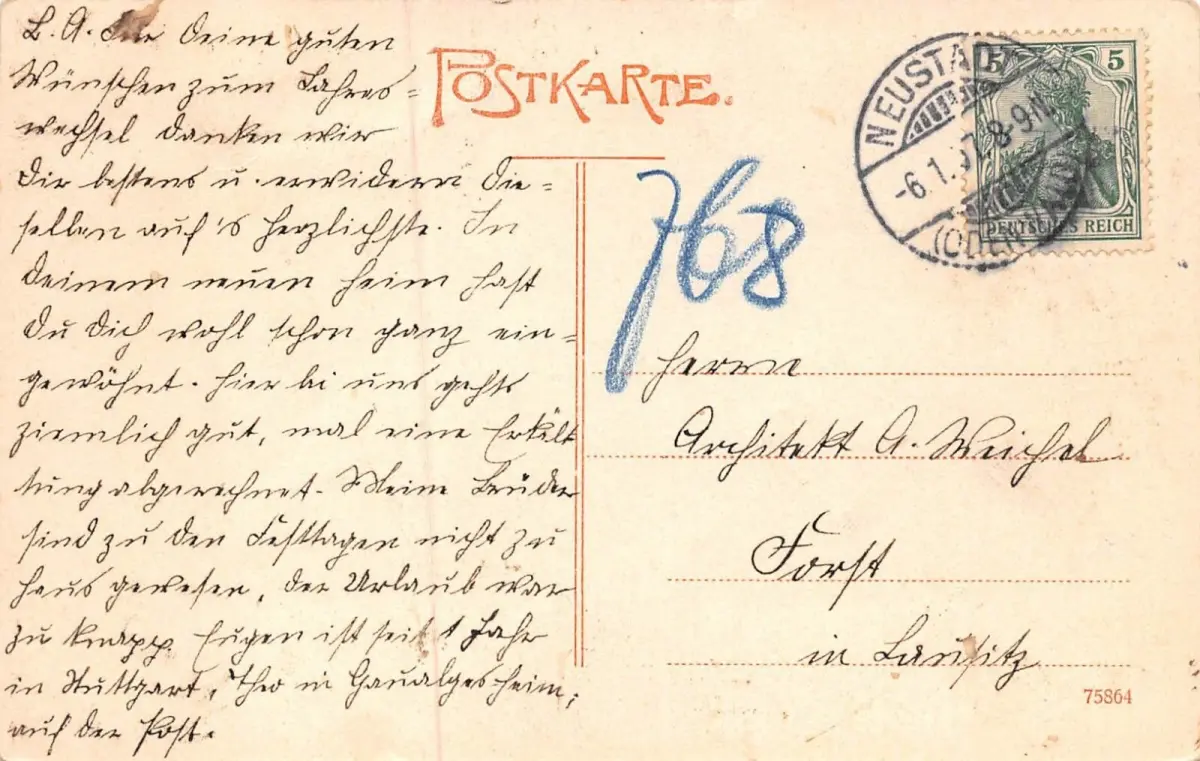 L. A. Für Deine guten
Wünschen zum Jahres=
wechsel danken wir
Dir bestens u. erwidern die=
selben auf's herzlichste. In
Deinem neuen Heim hast
Du Dich wohl schon ganz ein=
gewöhnt. Hier bei uns gehts
ziemlich gut, mal eine Erkält
tung abgerechnet. Meine Brüder
sind zu den Festtagen nicht zu
Haus gewesen, der Urlaub war
zu knapp. Eugen ist seit 1 Jahr
in Stuttgart, Theo in Gaualgesheim;
auf der Post.
POSTKARTE.
NEUSTADT
-6.1.07.8-9N.
(ODENWALD)
5 5
DEUTSCHES REICH
768
Herrn
Architekt A. Weichel
Forst
in Lausitz
75864